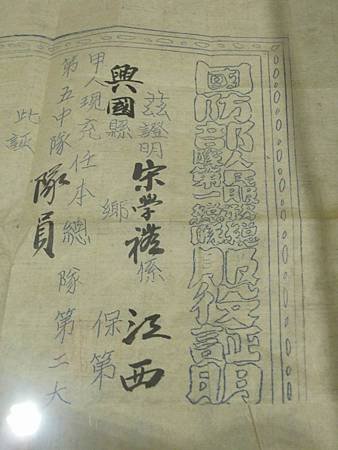 國防部人民服務總隊第一總隊服役証明
茲證明宋学禮係江西
興國縣 鄉 保第
甲人現充任本總隊第二大
第五中隊隊員
此証